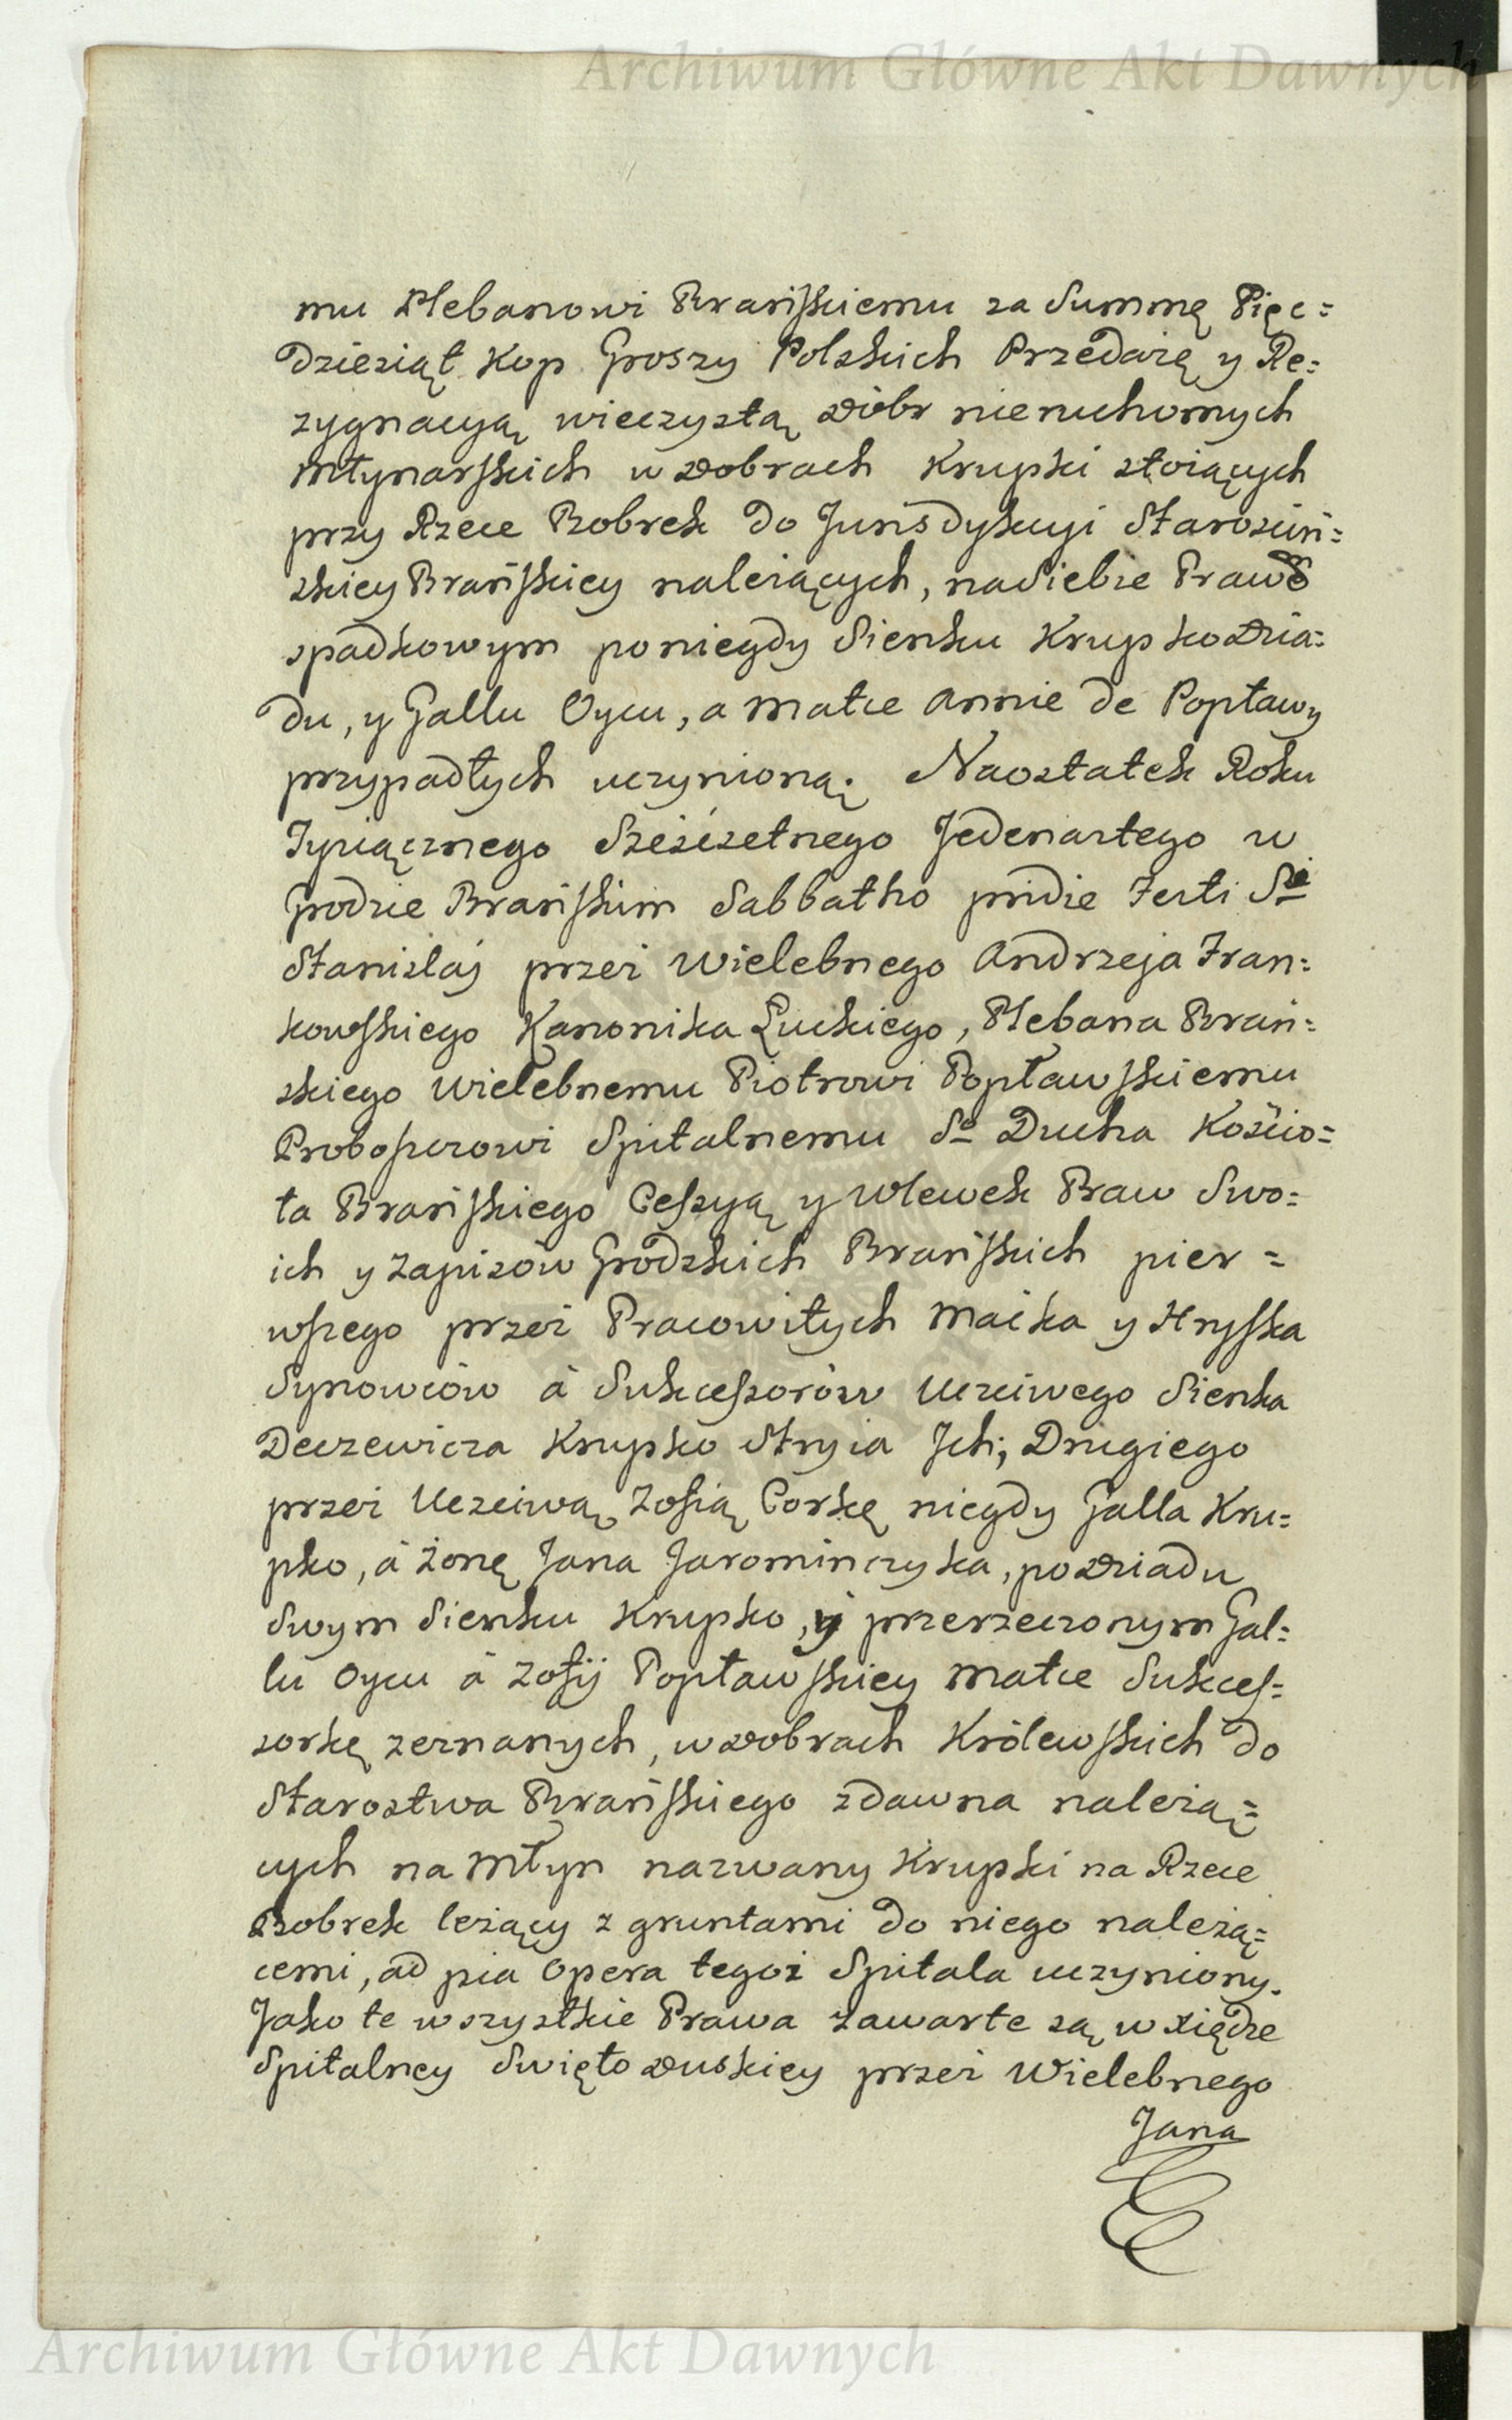 Archiwum Główne Akt Dawnych
mu Plebanowi Brańskiemu za Summę Pięc=
dziesiąt Kop Groszy Polskich Przedażę y Re=
zygnacyą wieczystą Dóbr nieruchomych
Młynarskich w Dobrach Krupki stoiących
przy Rzece Bobrek do Jurisdykcyi Starościń=
skiey Brańskiey należących, na siebie Prawe
spadkowym po niegdy Sienku Krupko Dzia=
du, y Gallu Oycu, a Matce Annie de Popławy
przypadłych uczynioną. Naostatek Roku
Tysiącznego Sześćsetnego Jedenastego w
Grodzie Brańskim Sabbatho pridie Festi Si
Stanislai przez Wielebnego Andrzeja Fran=
kowskiego Kanonika Łuckiego, Plebana Brań=
skiego Wielebnemu Piotrowi Popławskiemu
Proboszczowi Szpitalnemu So Ducha Kościo=
ła Brańskiego Cessyą y Wlewek Praw Swo=
ich y Zapisów Grodzkich Brańskich pier=
wszego przez Pracowitych Maćka y Hryska
Synowców á Sukcessorów Uczciwego Sienka
Deczewicza Krupko Stryia Ich; Drugiego
przez Uczciwą Zofią Corkę niegdy Galla Kru=
pko, á Żonę Jana Jarominczyka, po Dziadu
Swym Sienku Krupko, y przerzeczonym Gal=
lu Oycu á Zofij Popławskiey Matce Sukces=
sorkę zeznanych, w Dobrach Królewskich do
Starostwa Brańskiego zdawna należą=
cych na Młyn nazwany Krupki na Rzece
Bobrek leżący z gruntami do niego należą=
cemi, ad pia opera tegoż Szpitala uczyniony.
Jako te wszystkie Prawa zawarte są w Xiędze
Szpitalney Swięto Duskiey przez Wielebnego
Jana
Archiwum Główne Akt Dawnych